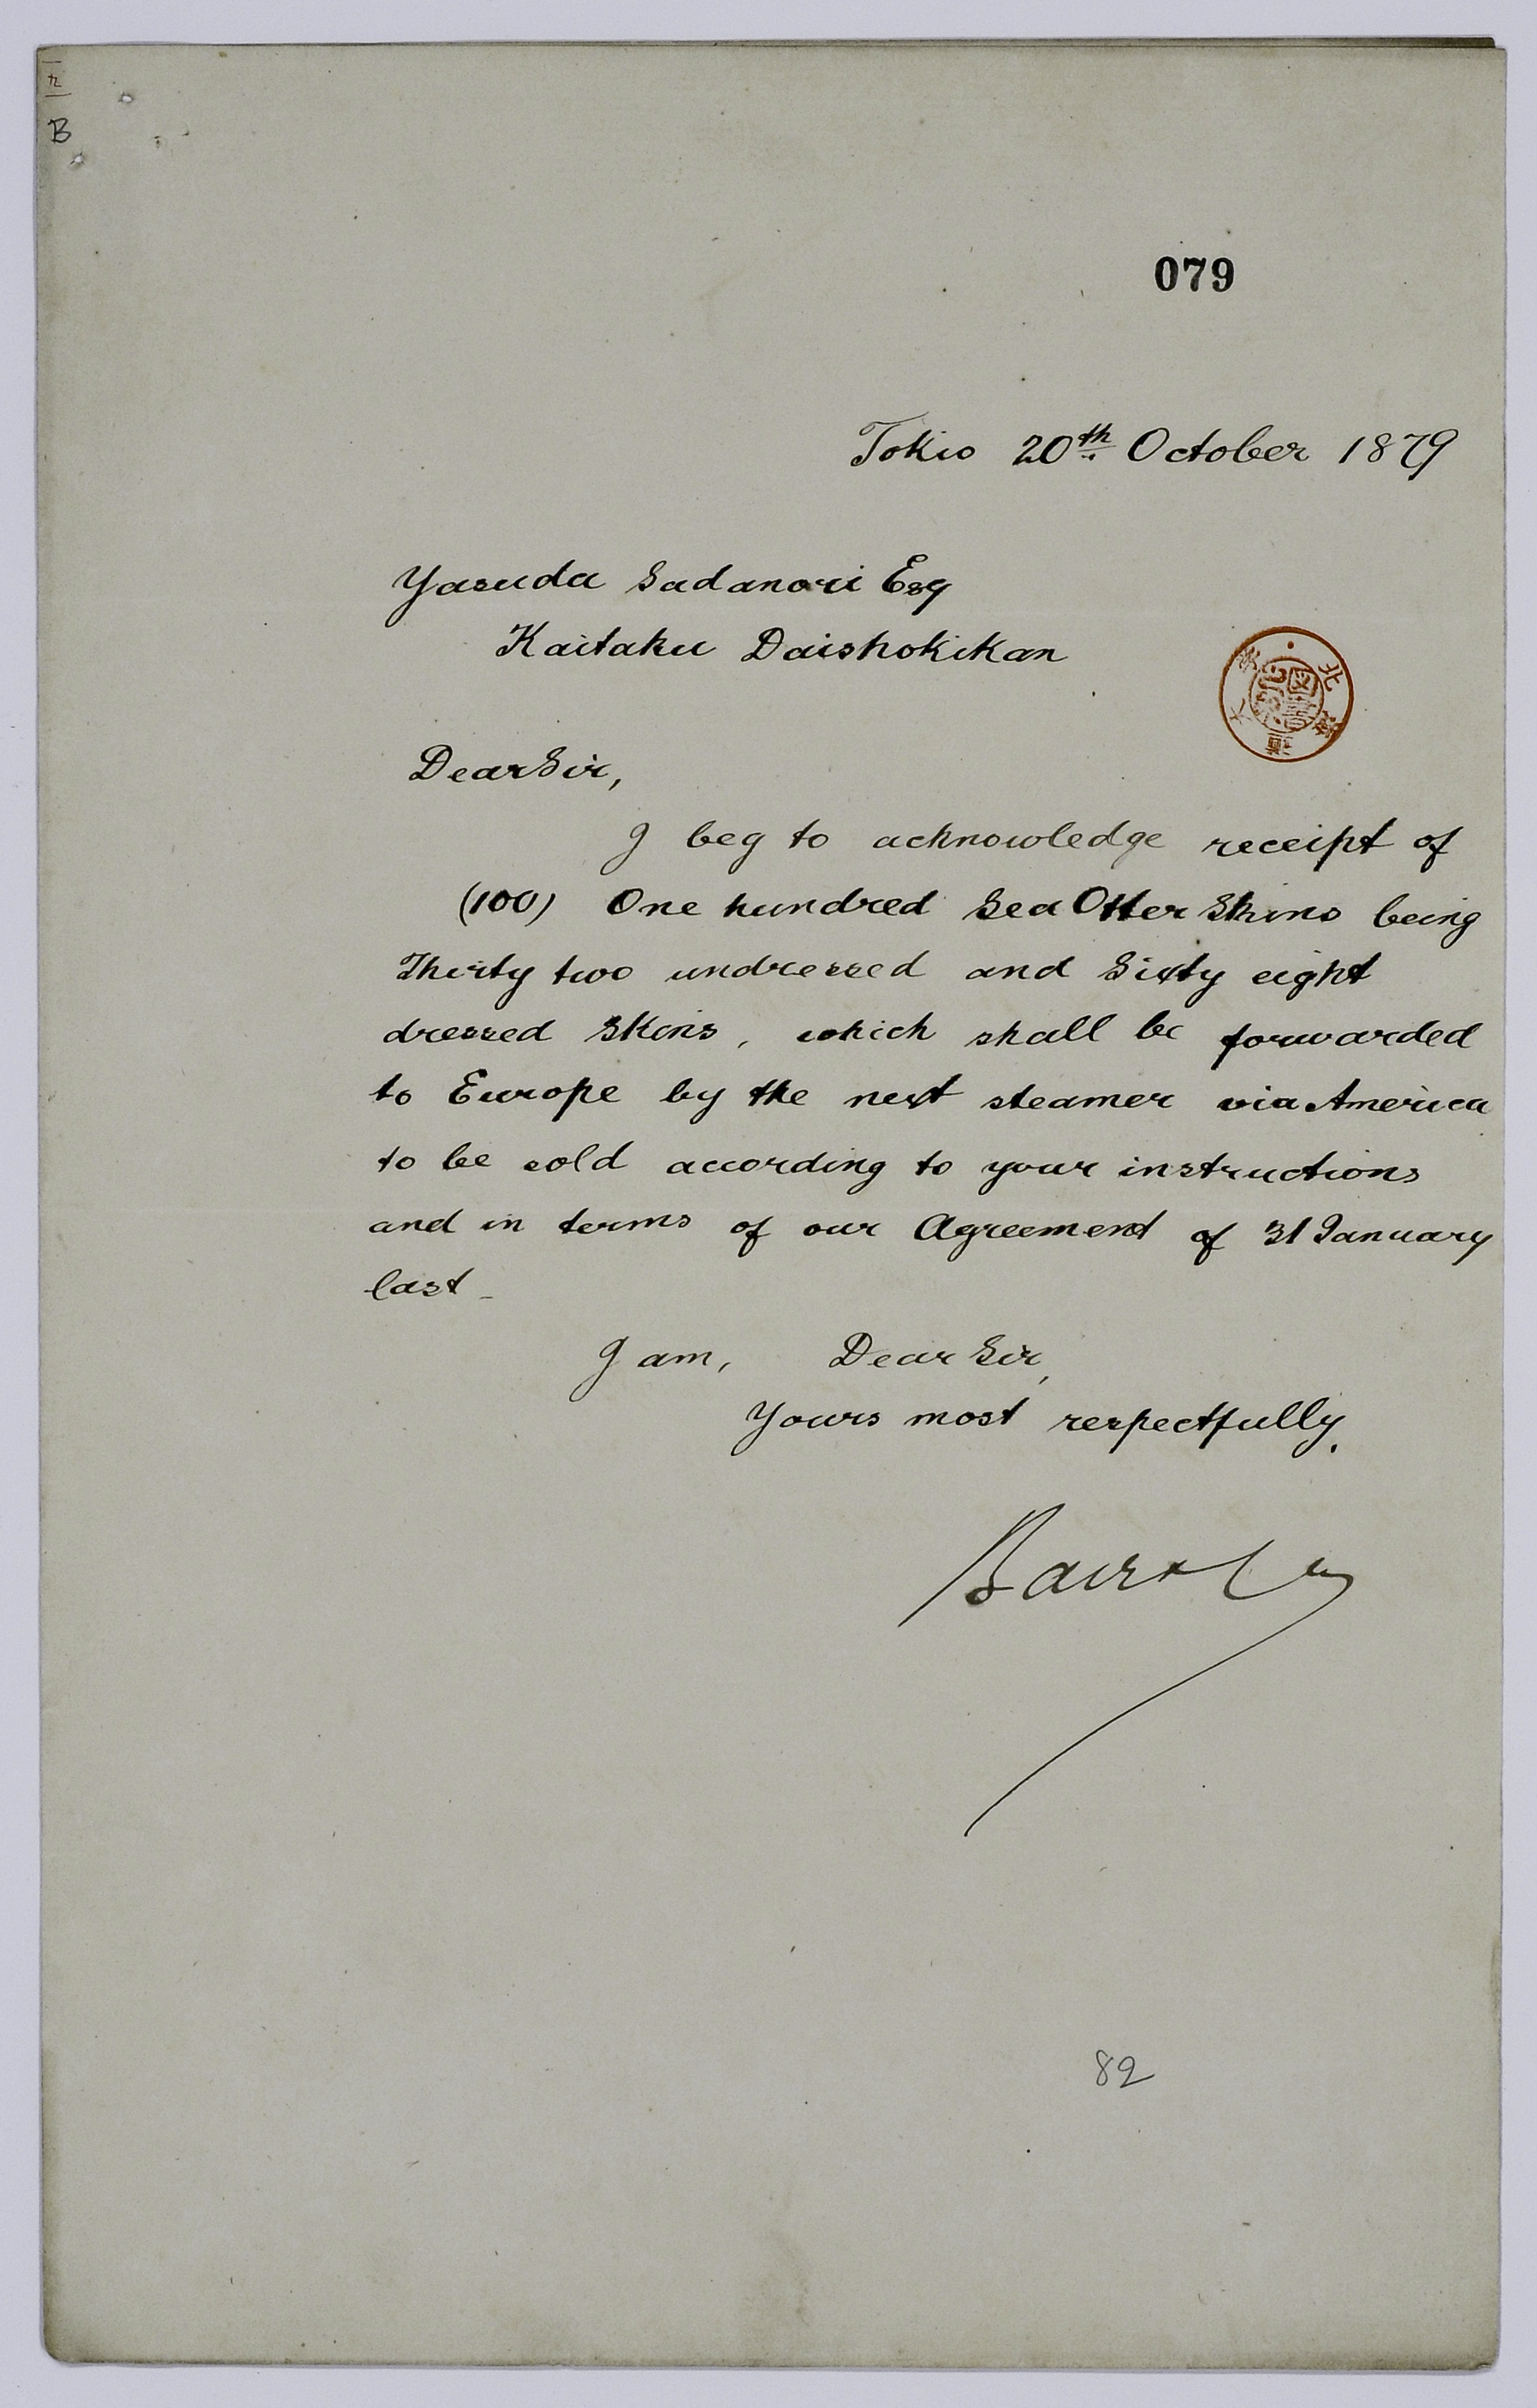 B
079
Tokio 20th October 1879
Yasuda Sadanori Esq
Kaitaku Daishokikan
Dear Sir,
I beg to acknowledge receipt of
(100) One hundred Sea Otter Skins being
Thirty two undressed and Sixty eight
dressed Skins, which shall be forwarded
to Europe by the next steamer via America
to be sold according to your instructions
and in terms of our Agreement of 31 January
last_
I am, Dear Sir,
Yours most respectfully.
82